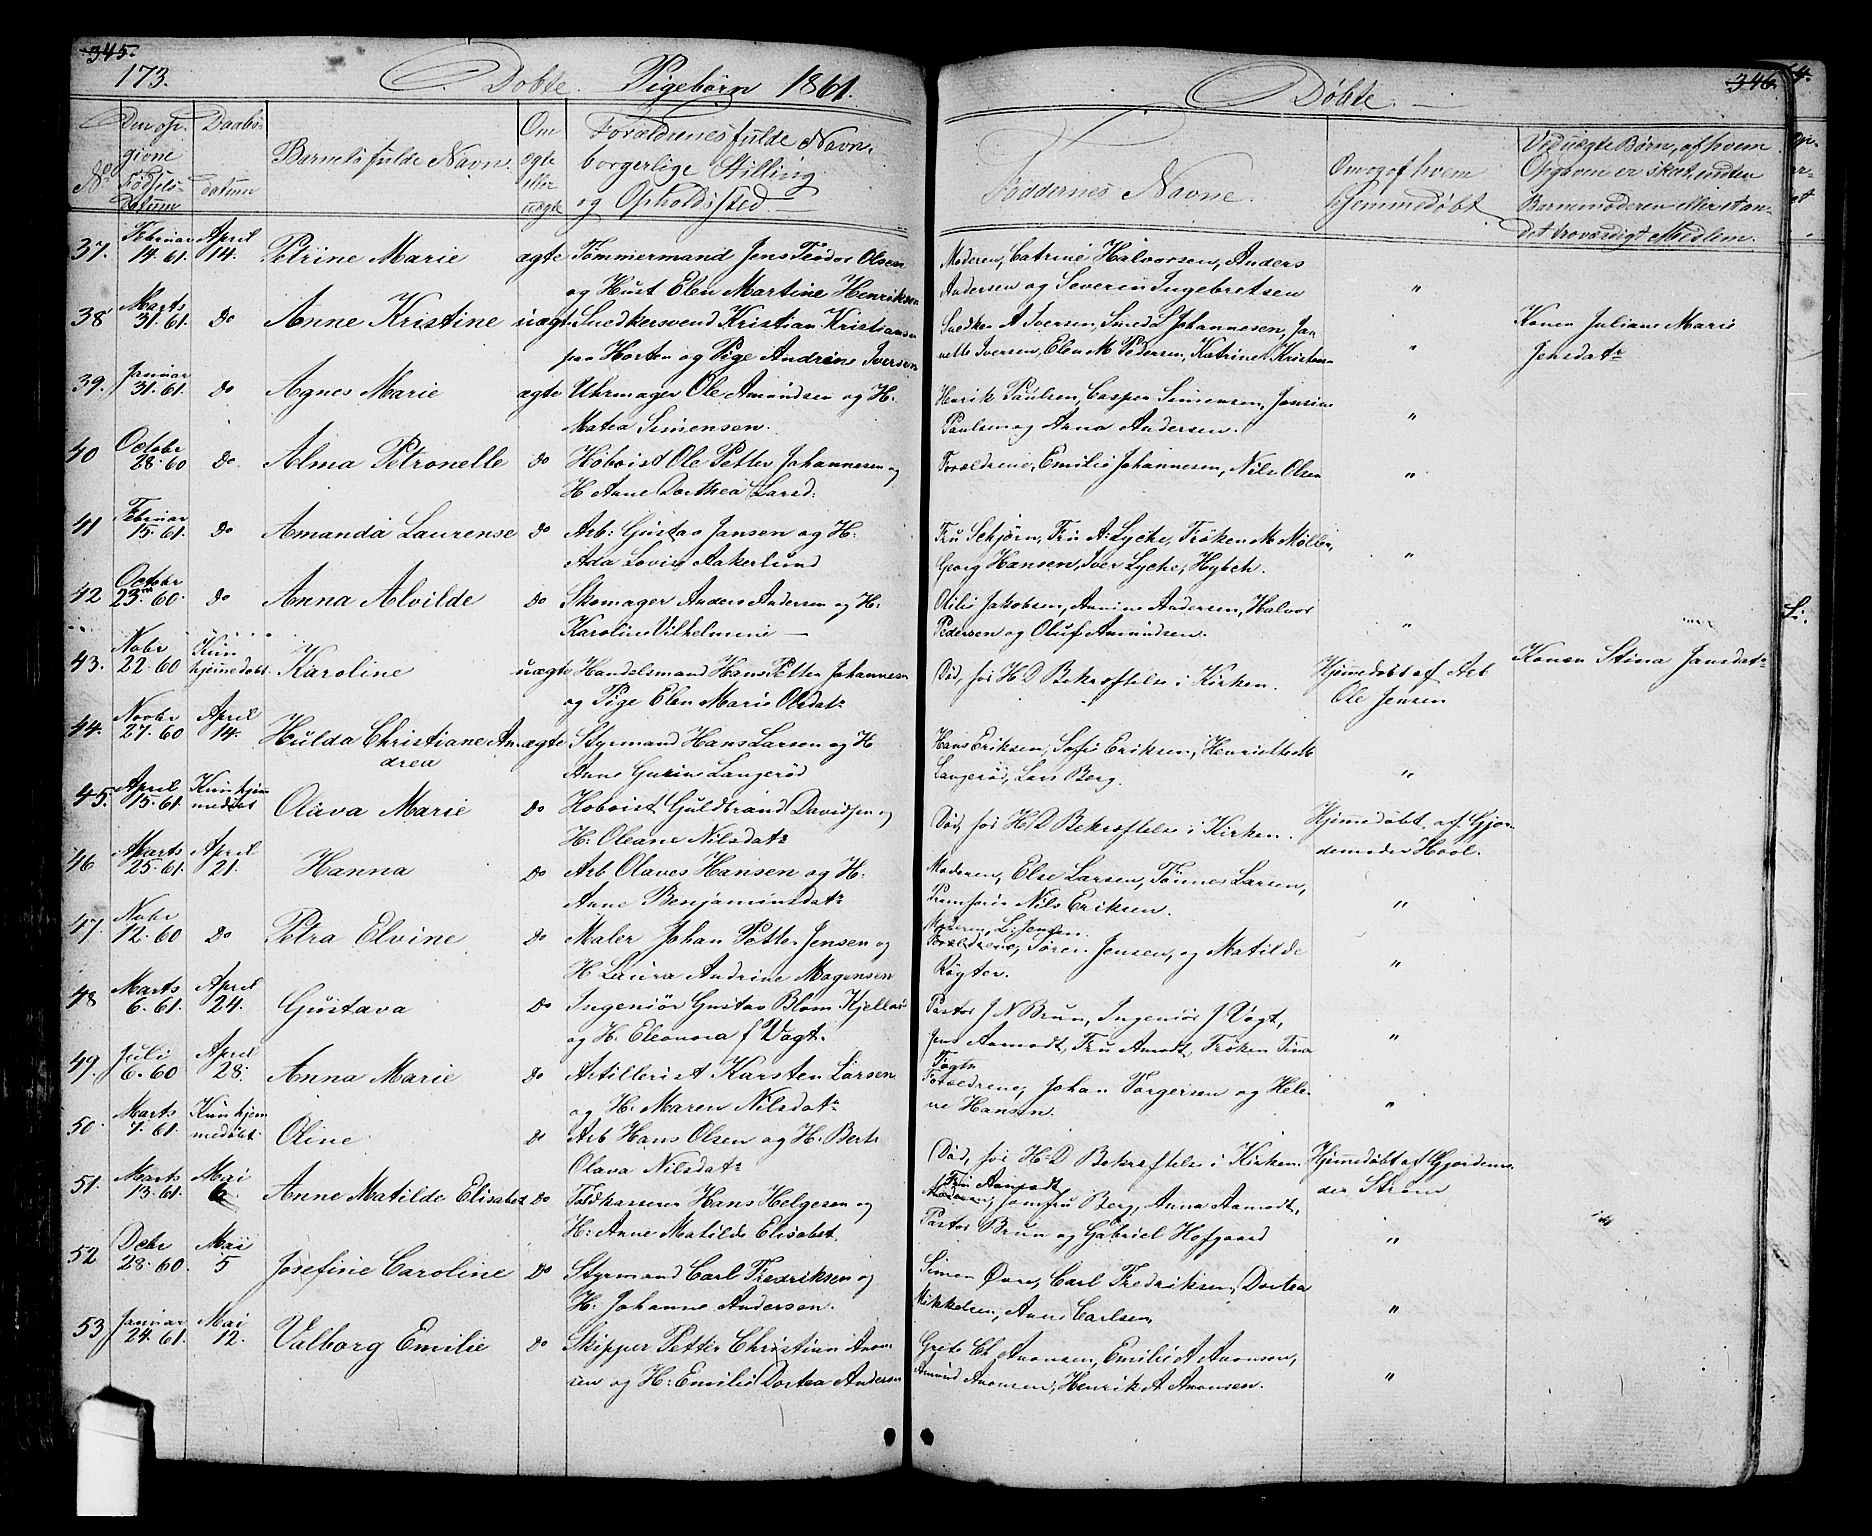 345.
173. Døbte. Pigebørn 1861.
No
Den op-
givne
Fødsels-
Datum
Daabs-
datum
Barnets fulde Navn.
Om
ægte
eller
uægte
Forældrenes fulde Navn,
borgerlige Stilling
og Opholdssted
37. Februar 14. 61. April 14. Petrine Marie ægte Tømmermand Jens Teodor Olsen
og Hust Elen Martine Henriksen
38 Marts 31. 61. Do Anne Kristine uægt Snedkersvend Kristian Kristiansen
paa Horten og Pige Andrine Iversen
39. Januar 31. 61. Do Agnes Marie ægte Uhrmager Ole Amundsen og H.
Matea Simensen.
40 Octobr 28. 60 Do. Alma Petronelle Do Hoboist Ole Petter Johannesen og
H. Anne Dorthea Larsd:
41 Februar 15. 61. Do Amanda Laurense Do Arb: Gustav Jansen og H:
Ada Lovise Aakerlund
42 Octobr 23. 60. Do Anna Alvilde Do Skomager Anders Andersen og H:
Karoline Vilhelmine
43. Nobr 22. 60 Kun hjemmedøbt Karoline uægte Handelsmand Hans Petter Johannesen
og Pige Elen Marie Olsdatr
44. Novbr 27. 60 April 14. Hulda Christiane An-
drea ægte Styrmand Hans Larsen og H
Anne Gurine Langerød
45. April 15. 61. Kun hjem
medøbt Olava Marie Do Hoboist Guldbrand Davidsen og
H: Oleane Nilsdatr
46 Marts 25. 61. April 21. Hanna Do Arb Olaves Hansen og H:
Anne Benjaminsdatr
47. Nobr 12. 60 Do Petra Elvine Do Maler Johan Petter Jensen og
H Laura Andrine Mogensen
48 Marts 6. 61. April 24. Gustava Do Ingeniør Gustav Blom Kjellerød
og H. Eleonora f Vogt.
49. Juli 6. 60 April 28. Anna Marie Do Artillerist Karsten Larsen
og H: Maren Nilsdatr
50. Marts 7. 61. Kun hjem
medøbt Oline Do Arb Hans Olsen og H: Berte
Olava Nilsdatr
51. Marts 13. 61. Mai 6 Anne Matilde Elisabed Do Toldkasserer Hans Helgesen og
H: Anne Matilde Elisabet
52 Debr 28. 60. Mai 5 Josefine Caroline Do Styrmand Carl Fredriksen og
H. Johanne Andersen.
53 Januar 24. 61. Mai 12. Valborg Emilie Do Skipper Petter Christian Anon-
sen og H: Emilie Dortea Andersen
346.
Døbte.
Faddernes Navne.
Om og af hvem
hjemmedøbt
Ved uægte Børn, af hvem
Opgaven er skat, uden
Barnemoderen eller stan-
det troværdigt Medlem.
Moderen, Catrine Halvorsen, Anders
Andersen og Severin Ingebretsen "
Snedker A Iversen, Smed L Johannesen, Jan-
nette Iversen, Elen M Pedersen, Katrine Kristens " Konen Juliane Marie
Jensdatr
Henrik Paulsen, Casper Simensen, Jensine
Paulsen og Anna Andersen. "
Forældrene, Emilie Johannesen, Nils Olsen "
Fru Schjørn, Fru A: Lyche, Frøken M Møller,
Georg Hansen, Iver Lyche, Hybch. "
Otilie Jakobsen, Annine Andersen, Halvor
Pedersen og Oluf Amundsen. "
Død, før H. D Bekræftelse i Kirken. Hjemmedøbt af Arb
Ole Jensen Konen Stina Jansdatr
Hans Eriksen, Sofie Eriksen, Henriette M
Langerød, Lars Berg. "
Død, før H. D Bekræftelse i Kirken. Hjemmedøbt af Gjor-
demoder Hool.
Moderen, Else Larsen, Tønnes Larsen,
Nils Eriksen. "
Moderen, L: Jensen
Forældrene, Søren Jensen, og Matilde
Røgter. "
Pastor J N Brun, Ingeniør J Vogt,
Jens Aamodt, Fru Amodt, Frøken Tina
Vogt. "
Forældrene, Johan Torgersen og Hele-
ne Hansen. "
Død, før H: D Bekræftelse i Kirken. Hjemmedøbt af Gjordemo-
der Strøm
Fru Aamodt
Moderen, Jomfru Berg, Anna Aamodt,
Pastor Brun og Gabriel Hofgaard "
Simen Øvre, Carl Fredriksen, Dortea
Mikkelsen, Anne Carlsen, "
Grete Ch Anonsen, Emilie A Anonsen,
Amund Anonsen, Henrik A Anonsen. "